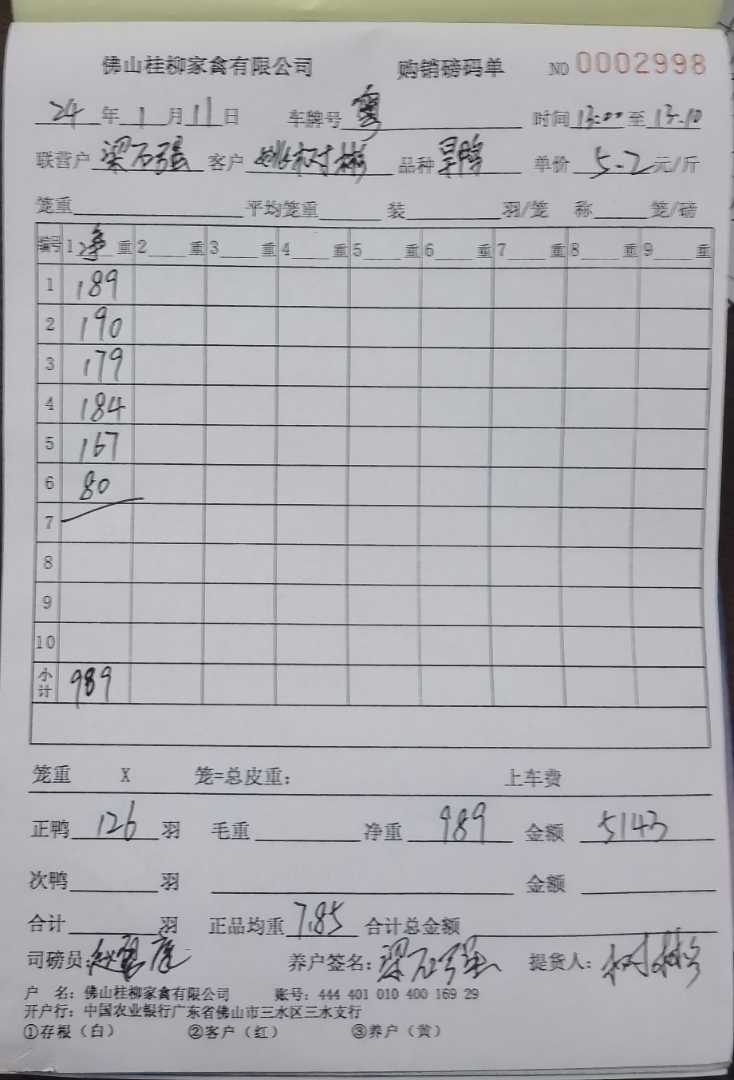 佛山桂柳家禽有限公司 购销磅码单 NO 0002998
24年1月11日 车牌号 粤 时间13:00至13.10
联营户 梁石强 客户 姚树彬 品种 单价 5.2元/斤
笼重 平均笼重 装 羽/笼 称 笼/磅
编号 1 净重 2 重 3 重 4 重 5 重 6 重 7 重 8 重 9 重
1 189
2 190
3 179
4 184
5 167
6 80
7
8
9
10
小计 989
笼重 X 笼=总皮重： 上车费
正鸭 126 羽 毛重 净重 989 金额 5143
次鸭 羽 金额
合计 羽 正品均重 7.85 合计总金额
司磅员： 养户签名：梁石强 提货人：树彬
户 名：佛山桂柳家禽有限公司 账号：444 401 010 400 169 29
开户行：中国农业银行广东省佛山市三水区三水支行
①存根（白） ②客户（红） ③养户（黄）